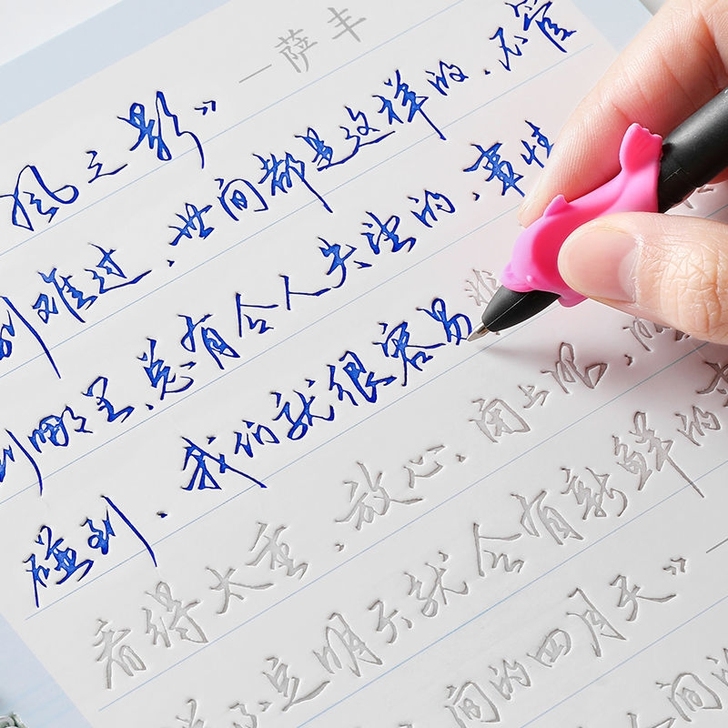 —萨丰
风之影”
到难过，世间都是这样的，不管
到哪里，总有令人失望的，事性
碰到，我们就很容易
看得太重，放心，闭上眼，
不定明天就会有新鲜的
间的四月天”—